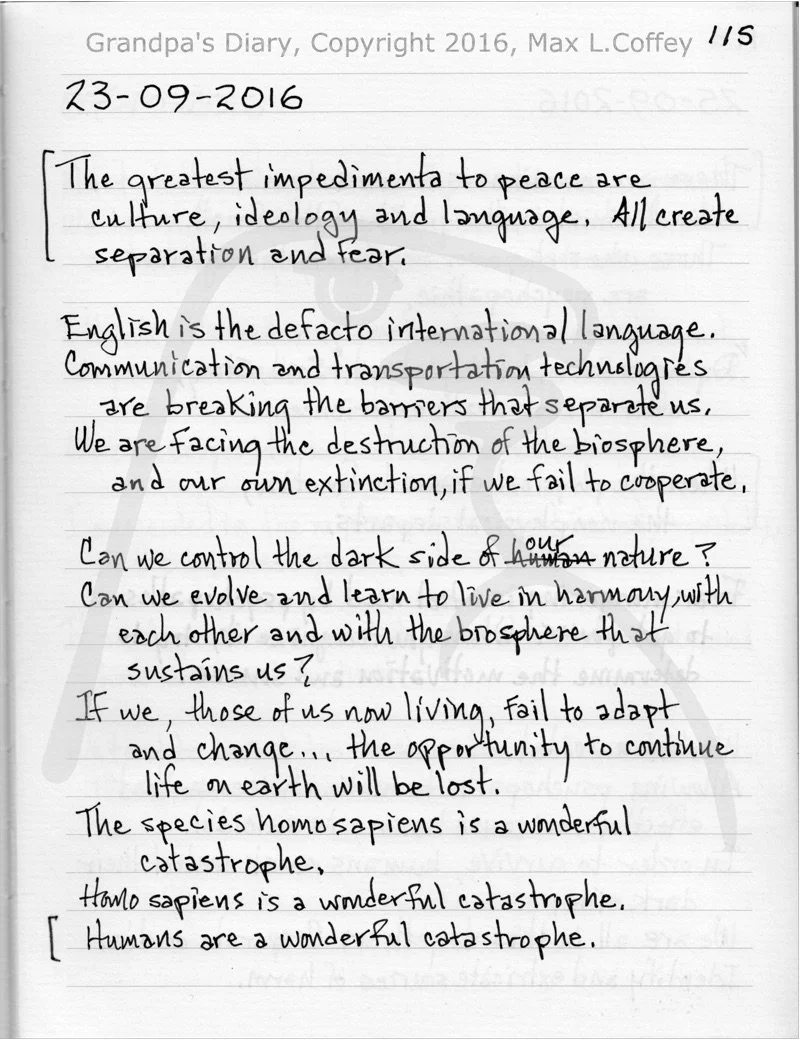 Grandpa's Diary, Copyright 2016, Max L.Coffey 115
23-09-2016
The greatest impedimenta to peace are
culture, ideology and language. All create
separation and fear.
English is the defacto international language.
Communication and transportation technologies
are breaking the barriers that separate us.
We are facing the destruction of the biosphere,
and our own extinction, if we fail to cooperate.
our
Can we control the dark side of human nature?
Can we evolve and learn to live in harmony, with
each other and with the biosphere that
sustains us?
If we, those of us now living, fail to adapt
and change... the opportunity to continue
life on earth will be lost.
The species homo sapiens is a wonderful
catastrophe.
Homo sapiens is a wonderful catastrophe.
Humans are a wonderful catastrophe.